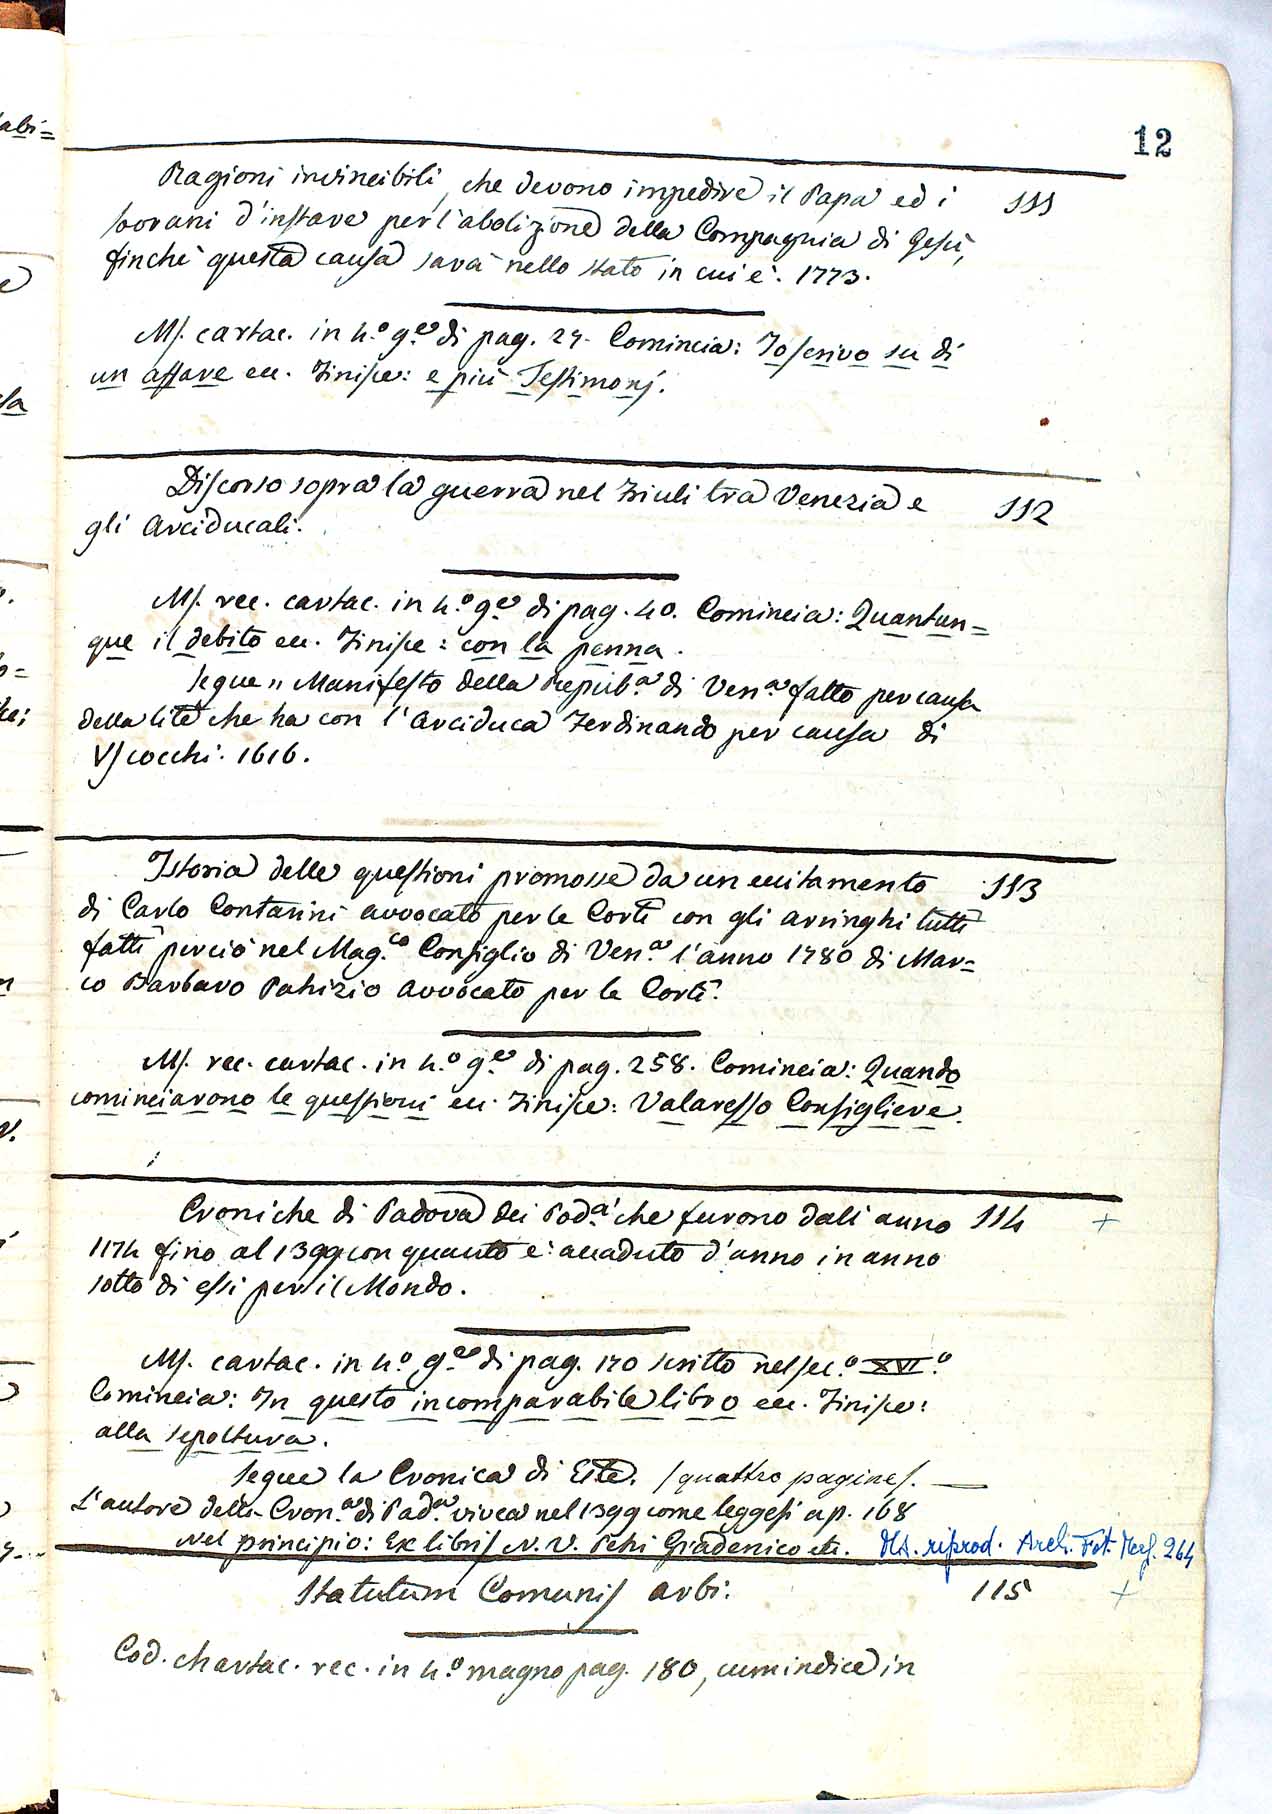 12
Ragioni invincibili, che devono impedire il Papa ed i 111
Sovrani d'instare per l'abolizione della Compagnia di Gesù,
finchè questa causa sarà nello stato in cui è. 1773.
Ms. cartac. in 4.º g.e di pag. 24. Comincia: Io scrivo su di
un affare ecc. Finisce: e più Testimonj.
Discorso sopra la guerra nel Friuli tra Venezia e 112
gli Arciducali.
Ms. rec. cartac. in 4.º g.e di pag. 40. Comincia: Quantun=
que il debito ecc. Finisce: con la penna.
Segue „ Manifesto della Repub.a di Ven.a fatto per causa
della lite che ha con l'Arciduca Ferdinando per causa di
Uscocchi. 1616.
Istoria delle questioni promosse da un eccitamento 113
di Carlo Contarini avvocato per le Corti con gli arringhi tutti
fatti perciò nel Mag.co Consiglio di Ven.a l'anno 1780 di Mar=
co Barbaro Patrizio avvocato per le Corti.
Ms. rec. cartac. in 4.º g.e di pag. 258. Comincia: Quando
cominciarono le questioni ecc. Finisce: Valaresso Consigliere.
Croniche di Padova dei Pod.à che furono dall'anno 114 +
1174 fino al 1399 con quanto è accaduto d'anno in anno
sotto di essi per il Mondo.
Ms. cartac. in 4.º g.e di pag. 170 scritto nel sec.º XVI.º
Comincia: In questo incomparabile libro ecc. Finisce:
alla sepoltura.
Segue la Cronica di Este. (quattro pagine). —
L'autore della Cron.a di Pad.a vivea nel 1399 come leggesi a p. 168
Nel principio: Ex libris N. V. Petri Gradenico etc. Ms. riprod. Arch. Fot. Marc. 264
Statutum Comunis Arbi. 115 +
Cod. chartac. rec. in 4.º magno pag. 180, cum indice in